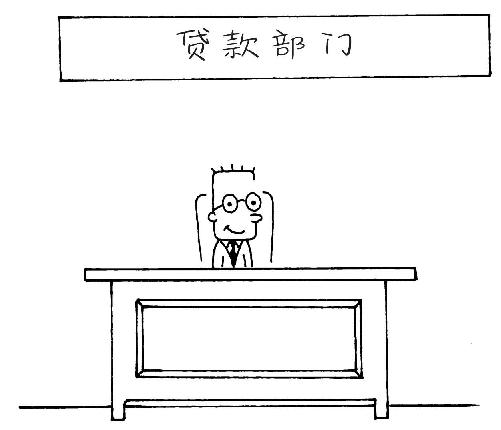 贷款部门